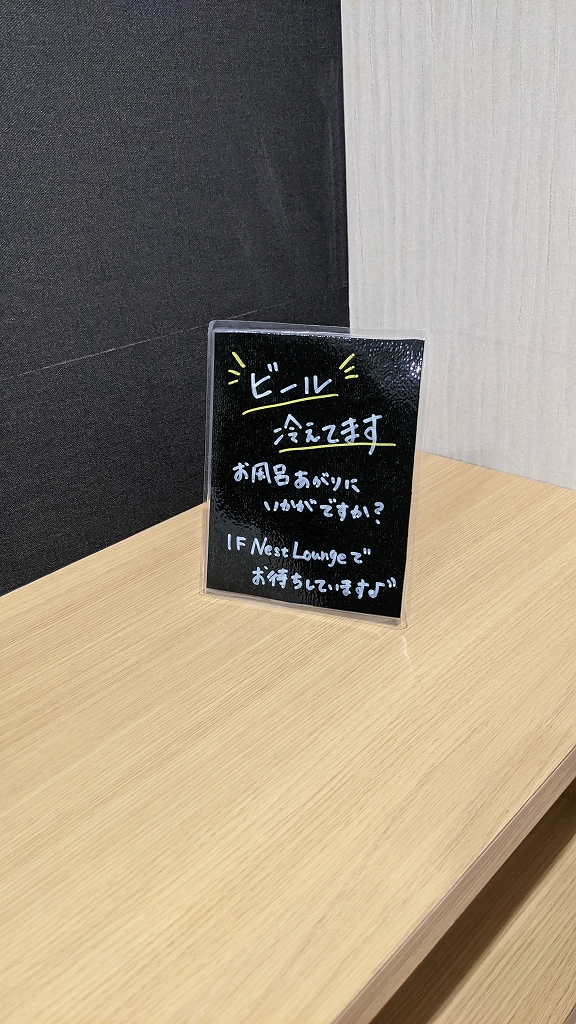 ビール
冷えてます
お風呂あがりに
いかがですか?
1F Nest Loungeで
お待ちしています♪